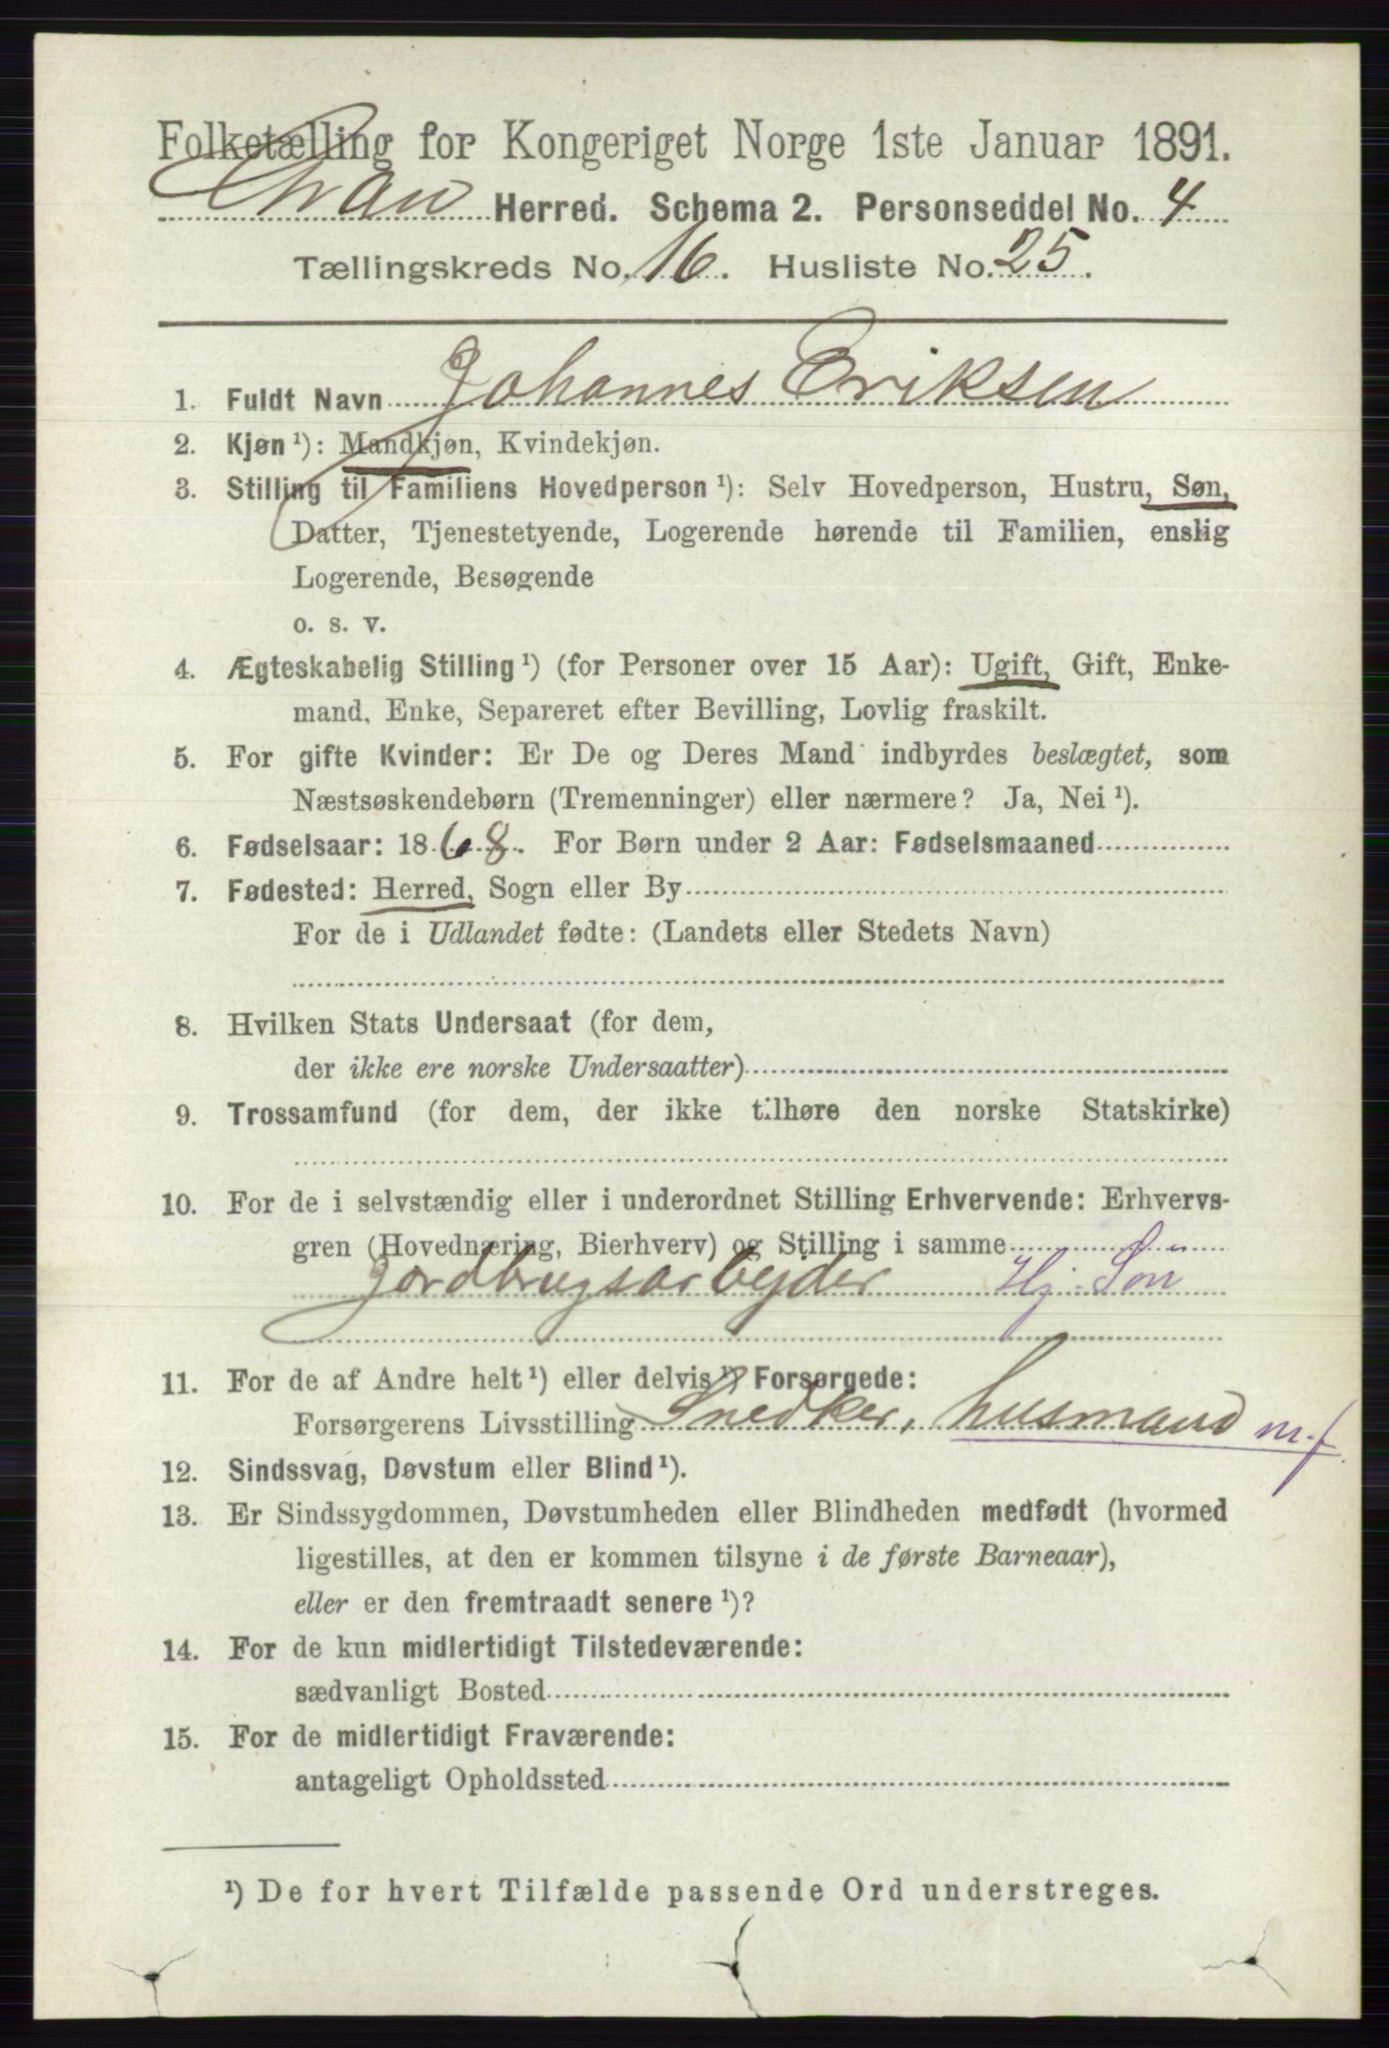 Folketælling for Kongeriget Norge 1ste Januar 1891.
Gran Herred. Schema 2. Personseddel No. 4
Tællingskreds No. 16. Husliste No. 25.
1. Fuldt Navn Johannes Eriksen
2. Kjøn ¹): Mandkjøn, Kvindekjøn.
3. Stilling til Familiens Hovedperson ¹): Selv Hovedperson, Hustru, Søn,
Datter, Tjenestetyende, Logerende hørende til Familien, enslig
Logerende, Besøgende
o. s. v.
4. Ægteskabelig Stilling ¹) (for Personer over 15 Aar): Ugift, Gift, Enke-
mand, Enke, Separeret efter Bevilling, Lovlig fraskilt.
5. For gifte Kvinder: Er De og Deres Mand indbyrdes beslægtet, som
Næstsøskendebørn (Tremenninger) eller nærmere? Ja, Nei ¹).
6. Fødselsaar: 1868. For Børn under 2 Aar: Fødselsmaaned
7. Fødested: Herred, Sogn eller By
For de i Udlandet fødte: (Landets eller Stedets Navn)
8. Hvilken Stats Undersaat (for dem,
der ikke ere norske Undersaatter)
9. Trossamfund (for dem, der ikke tilhøre den norske Statskirke)
10. For de i selvstændig eller i underordnet Stilling Erhvervende: Erhvervs-
gren (Hovednæring, Bierhverv) og Stilling i samme
Jordbrugsarbejder Hj. Søn
11. For de af Andre helt ¹) eller delvis ¹) Forsørgede:
Forsørgerens Livsstilling Snedker, husmand m. f
12. Sindssvag, Døvstum eller Blind ¹).
13. Er Sindssygdommen, Døvstumheden eller Blindheden medfødt (hvormed
ligestilles, at den er kommen tilsyne i de første Barneaar),
eller er den fremtraadt senere ¹)?
14. For de kun midlertidigt Tilstedeværende:
sædvanligt Bosted
15. For de midlertidigt Fraværende:
antageligt Opholdssted
¹) De for hvert Tilfælde passende Ord understreges.